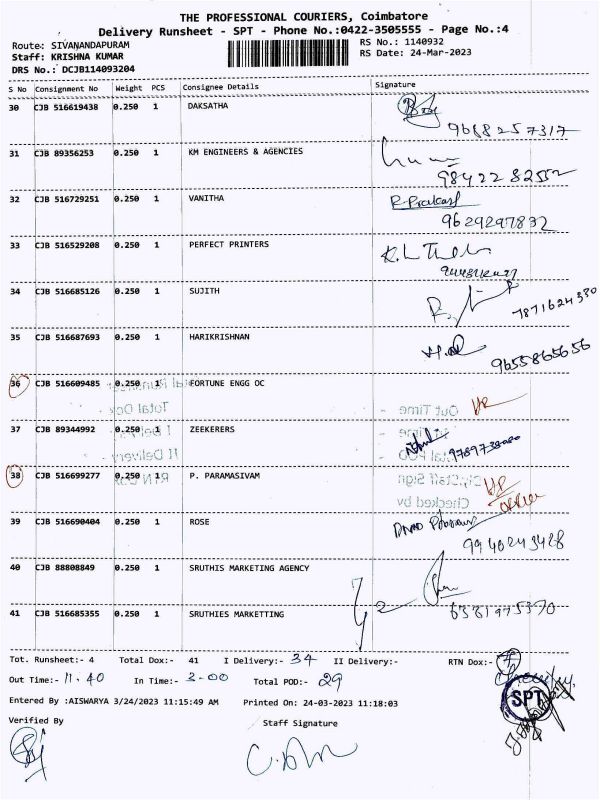 THE PROFESSIONAL COURIERS, Coimbatore
Delivery Runsheet - SPT - Phone No.:0422-3505555 - Page No.:4
Route: SIVANANDAPURAM
RS No.: 1140932
Staff: KRISHNA KUMAR
RS Date: 24-Mar-2023
DRS No.: DCJB114093204
S No Consignment No Weight PCS Consignee Details Signature
30 CJB 516619438 0.250 1 DAKSATHA
9688257317
31 CJB 89356253 0.250 1 KM ENGINEERS & AGENCIES
9842282552
32 CJB 516729251 0.250 1 VANITHA R. Prakash
9629297832
33 CJB 516529208 0.250 1 PERFECT PRINTERS
34 CJB 516685126 0.250 1 SUJITH
7871624330
35 CJB 516687693 0.250 1 HARIKRISHNAN
9655865656
36 CJB 516609485 0.250 1 FORTUNE ENGG OC
Total Runsheet
Out Time -
Total Dox -
37 CJB 89344992 0.250 1 ZEEKERERS
I Delivery
II Delivery
38 CJB 516699277 0.250 1 P. PARAMASIVAM
RTN Dox
Staff Sign
Checked by
39 CJB 516690404 0.250 1 ROSE
9940243428
40 CJB 88808849 0.250 1 SRUTHIS MARKETING AGENCY
6381975370
41 CJB 516685355 0.250 1 SRUTHIES MARKETTING
Tot. Runsheet:- 4 Total Dox:- 41 I Delivery:- 34 II Delivery:- RTN Dox:- 7
Out Time:- 11.40 In Time:- 2.00 Total POD:- 29
SPT
Entered By :AISWARYA 3/24/2023 11:15:49 AM Printed On: 24-03-2023 11:18:03
Verified By Staff Signature